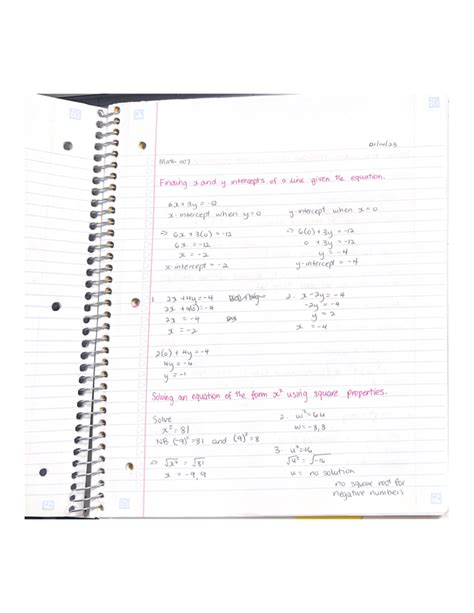 Math 007
Finding x and y intercepts of a line given the equation.
6x + 3y = -12
x-intercept when y = 0
⇒ 6x + 3(0) = -12
6x = -12
x = -2
x-intercept = -2
y-intercept when x = 0
⇒ 6(0) + 3y = -12
0 + 3y = -12
y = -4
y-intercept = -4
1. 2x + 4y = -4
2x + 4(0) = -4
2x = -4
x = -2
2(0) + 4y = -4
4y = -4
y = -1
2. x - 2y = -4
-2y = -4
y = 2
x = -4
Solving an equation of the form x² using square properties.
Solve
x² = 81
NB (-9)² = 81 and (9)² = 8
⇒ √x² = √81
x = -9, 9
2. w² = 64
w = -8, 8
3. u² = -16
√u² = √-16
u = no solution
no square root for
negative numbers